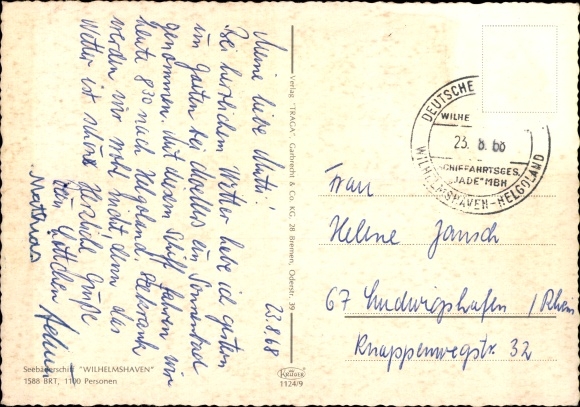 23.8.68
Meine liebe Mutti!
Bei herrlichem Wetter habe ich gestern
im Garten bei Moelles ein Sonnenbad
genommen. Mit diesem Schiff fahren wir
heute 8.30 nach Helgoland. Seekrank
werden wir wohl nicht, denn das
Wetter ist schön. Herzliche Grüße
Dein
Matthias
Verlag "TRAGA", Garbrecht & Co. KG, 28 Bremen, Oderstr. 39
KRÜGER
1124/9
Seebäderschiff "WILHELMSHAVEN"
1588 BRT, 1100 Personen
DEUTSCHE
WILHE
23. 8. 68
SCHIFFAHRTSGES.
"JADE" MBH
WILHELMSHAVEN-HELGOLAND
Frau
Helene Jansch
67 Ludwigshafen / Rhein
Knappenwegstr. 32